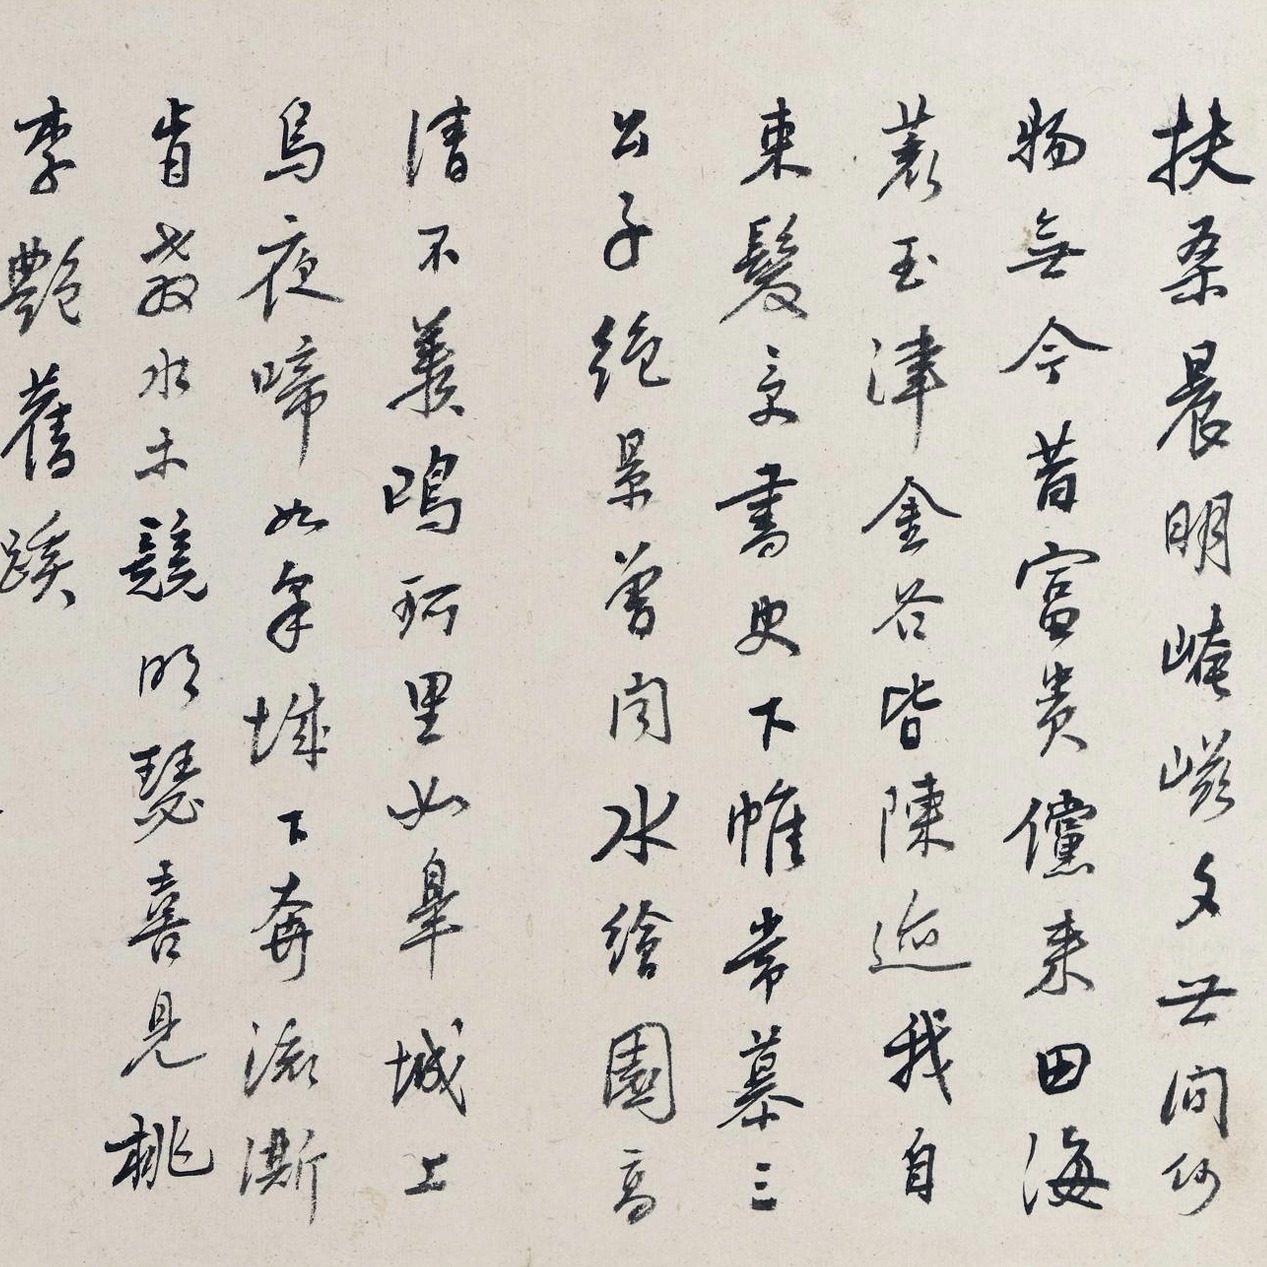 扶桑晨明崦嵫夕世間何
物無今昔富貴儻來田海
叢玉津金谷皆陳迹我自
束髮京書史下帷常慕三
公子絕景曾聞水繪園高
清不羨鳴珂里如皋城上
烏夜啼如皋城下奔流澌
肯教水木競明瑟喜見桃
李艷舊蹊